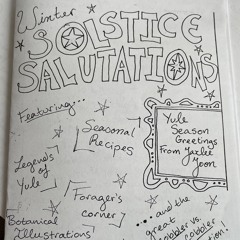 Winter
SOLSTICE
SALUTATIONS
Featuring...
Seasonal
Recipes
Yule
Season
Greetings
From
Yoon
Legends
of
Yule
Forager's
corner
Botanical
Illustrations
...and the
great
cobbler vs.
cobbler